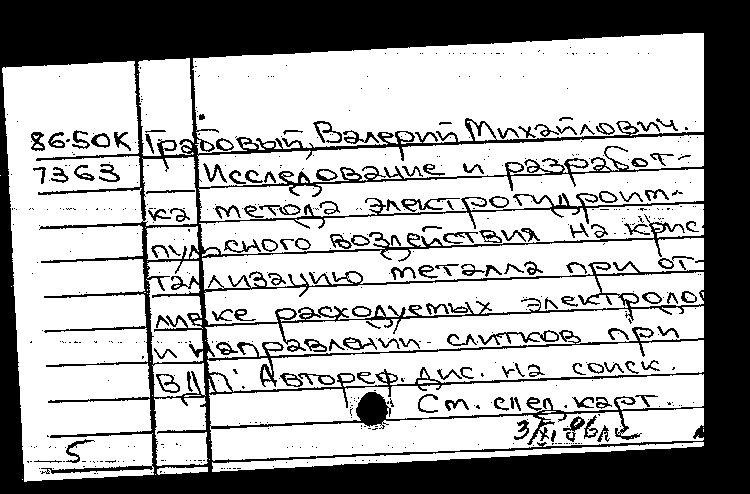 86-50К Грабовый, Валерий Михайлович.
7363 Исследование и разработ-
ка метода электрогидроим-
пульсного воздействия на крис-
таллизацию металла при от-
ливке расходуемых электродов
и направлении слитков при
ВДП: Автореф. дис. на соиск.
См. след. карт.
3/XI 86
5